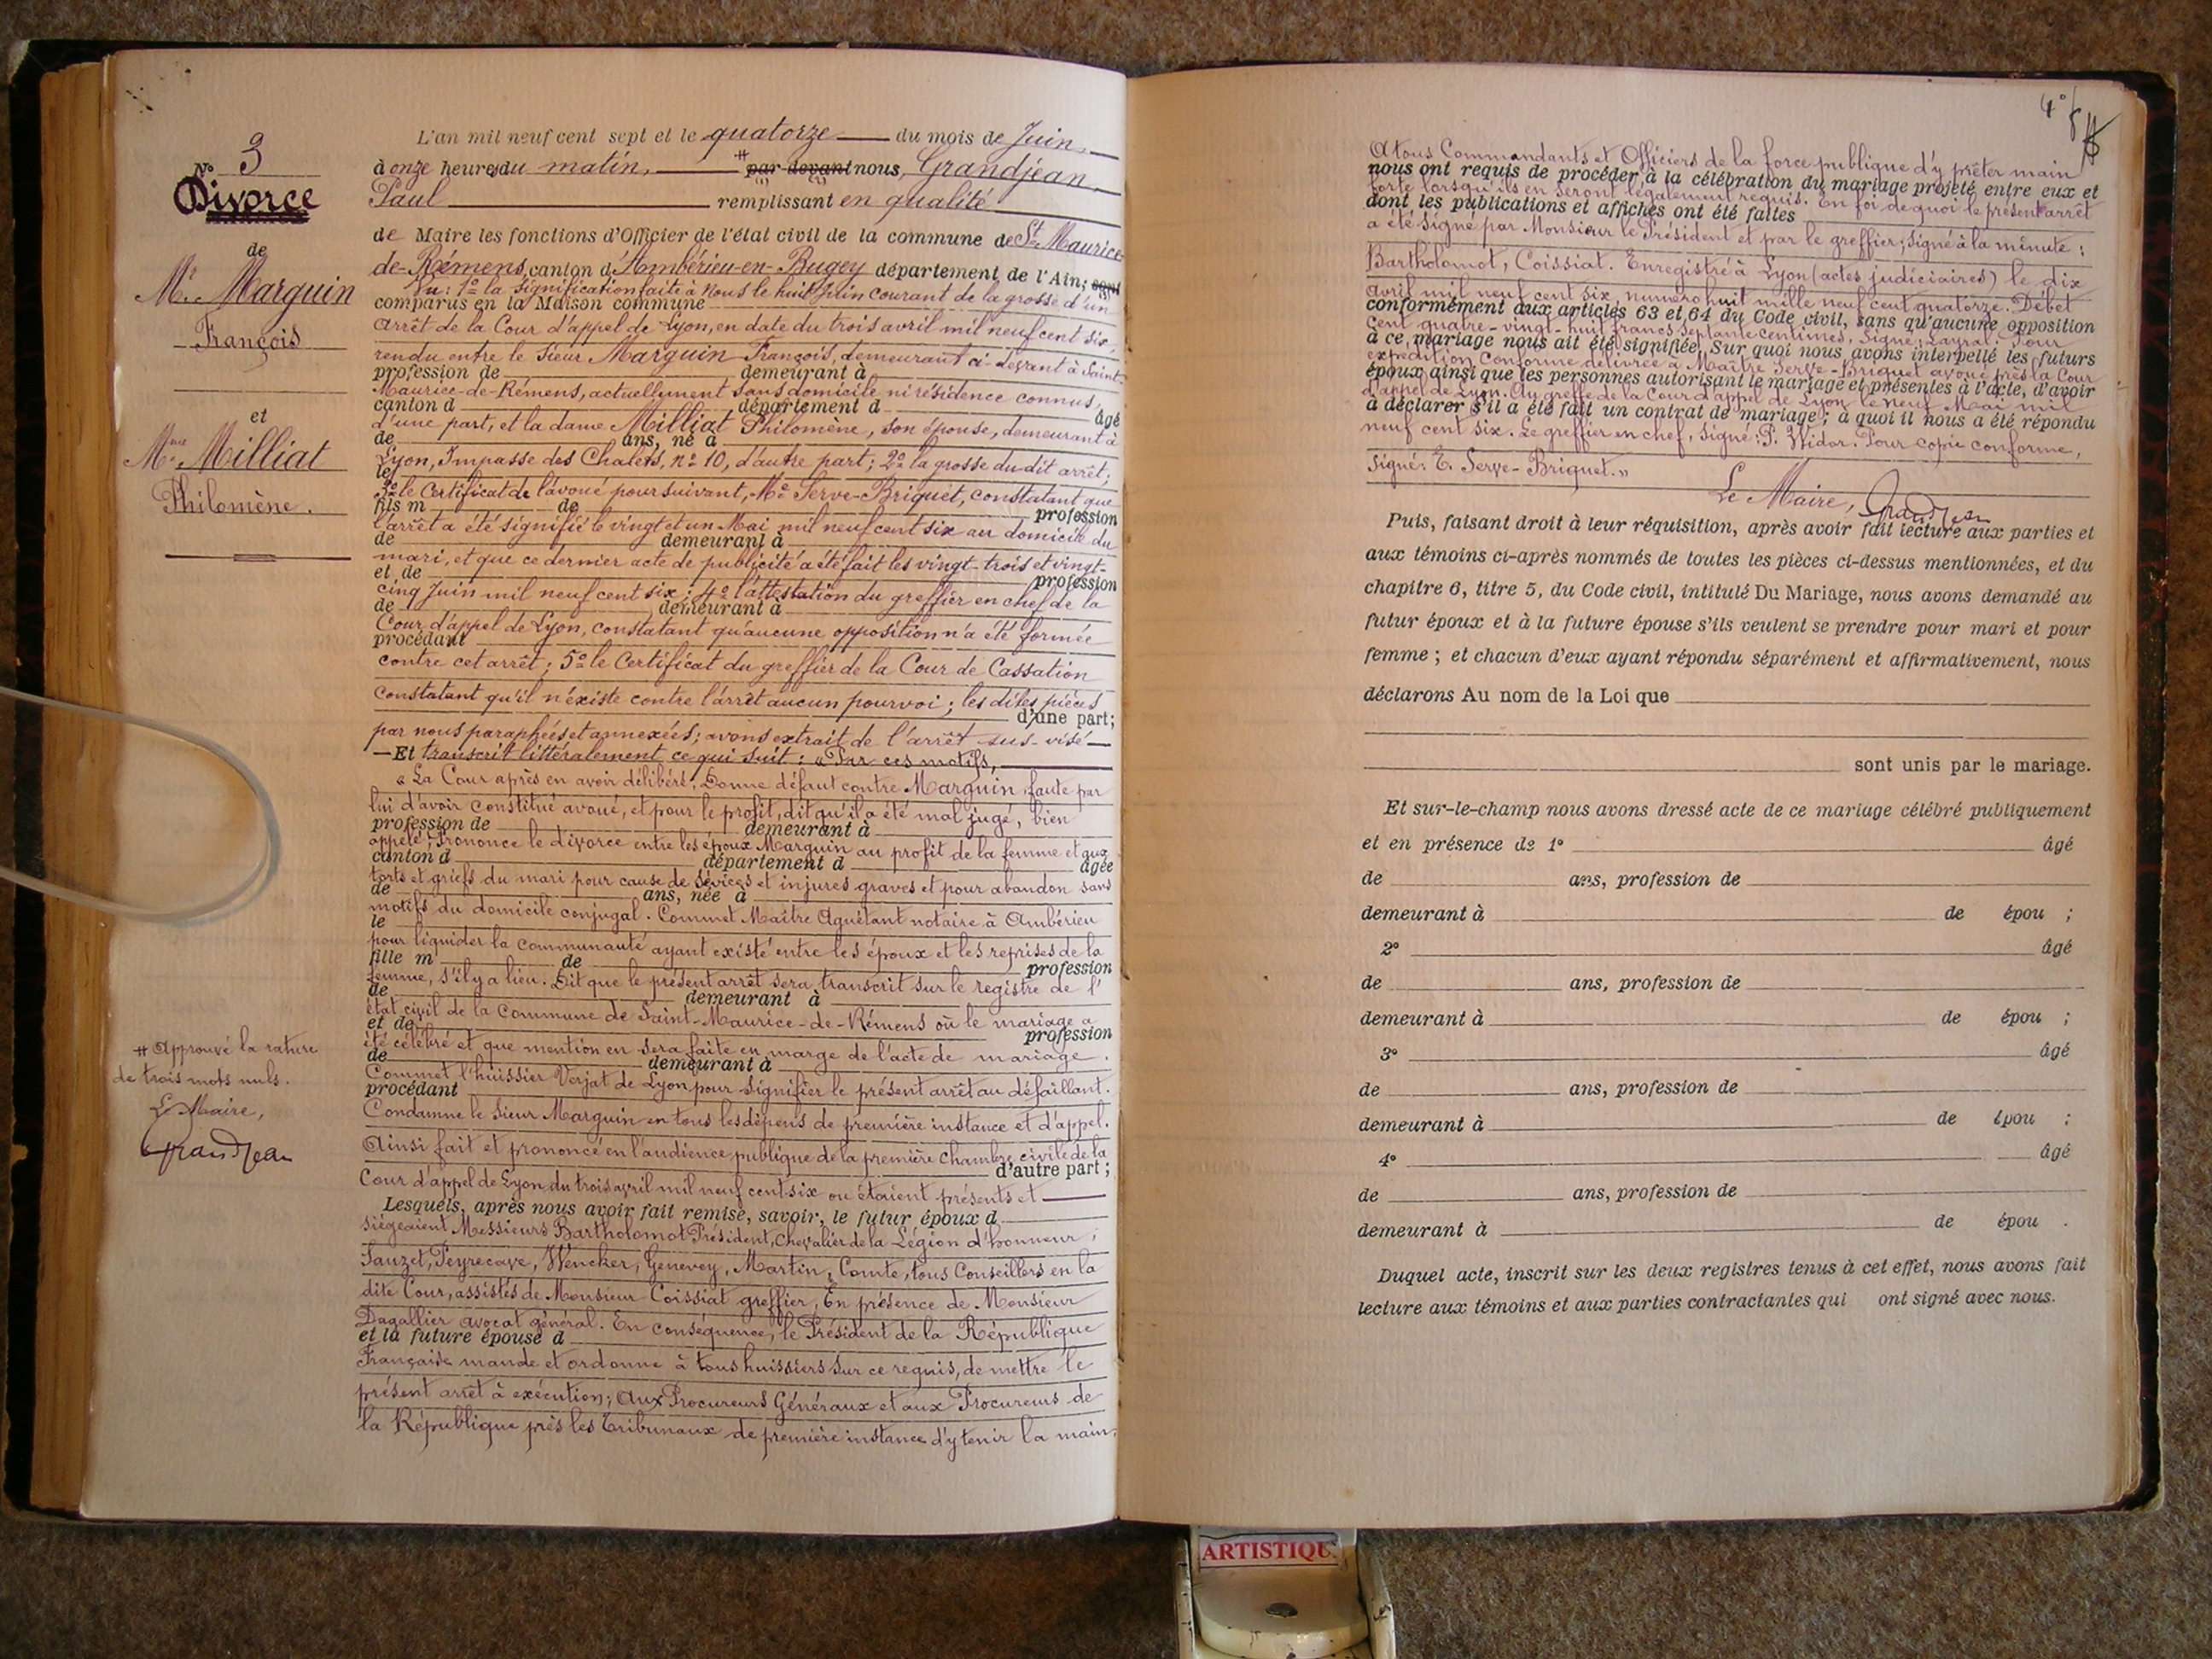 N° 3
Divorce
de
Mr. Marguin
François
et
Mme Milliat
Philomène.
# Approuvé la rature
de trois mots nuls.
Le Maire,
Grandjean
L'an mil neuf cent sept et le quatorze du mois de Juin
à onze heures du matin, # par devant nous, Grandjean
Paul remplissant en qualité
de Maire les fonctions d'Officier de l'état civil de la commune de St Maurice-
de-Rémens, canton d'Ambérieu-en-Bugey département de l'Ain; sont
Vu: 1° la signification faite à Nous le huit Juin courant de la grosse d'un
comparus en la Maison commune
arrêt de la Cour d'appel de Lyon, en date du trois avril mil neuf cent six,
rendu entre le sieur Marguin François, demeurant ci-devant à Saint-
profession de demeurant à
Maurice-de-Rémens, actuellement sans domicile ni résidence connus,
canton d département d âgé
d'une part, et la dame Milliat Philomène, son épouse, demeurant à
de ans, né à
Lyon, Impasse des Chalets, n° 10, d'autre part; 2° la grosse du dit arrêt;
le
3° le Certificat de l'avoué poursuivant, Me Serve-Briquet, constatant que
fils m de profession
l'arrêt a été signifié le vingt et un Mai mil neuf cent six au domicile du
de demeurant à
mari, et que ce dernier acte de publicité a été fait les vingt-trois et vingt-
et de profession
cinq Juin mil neuf cent six; 4° l'attestation du greffier en chef de la
de demeurant à
Cour d'appel de Lyon, constatant qu'aucune opposition n'a été formée
procédant
contre cet arrêt; 5° le Certificat du greffier de la Cour de Cassation
constatant qu'il n'existe contre l'arrêt aucun pourvoi; les dites pièces
d'une part;
par nous paraphées et annexées; avons extrait de l'arrêt sus-visé
—Et transcrit littéralement ce qui suit: «Par ces motifs,
«La Cour après en avoir délibéré; Donne défaut contre Marguin, faute par
lui d'avoir constitué avoué, et pour le profit, dit qu'il a été mal jugé, bien
profession de demeurant à
appelé; Prononce le divorce entre les époux Marguin au profit de la femme et aux
canton d département d âgée
torts et griefs du mari pour cause de sévices et injures graves et pour abandon sans
de ans, née à
motifs du domicile conjugal. Commet Maître Aguétant notaire à Ambérieu
le
pour liquider la communauté ayant existé entre les époux et les reprises de la
fille m de profession
femme, s'il y a lieu. Dit que le présent arrêt sera transcrit sur le registre de l'
de demeurant à
état civil de la Commune de Saint-Maurice-de-Rémens où le mariage a
et de profession
été célébré et que mention en sera faite en marge de l'acte de mariage.
de demeurant à
Commet l'huissier Verjat de Lyon pour signifier le présent arrêt au défaillant.
procédant
Condamne le sieur Marguin en tous les dépens de première instance et d'appel.
Ainsi fait et prononcé en l'audience publique de la première chambre civile de la
d'autre part;
Cour d'appel de Lyon du trois avril mil neuf cent six ou étaient présents et
Lesquels, après nous avoir fait remise, savoir, le futur époux d
siégeaient Messieurs Bartholomot Président, Chevalier de la Légion d'honneur;
Sauzet, Peyrecave, Wencker, Genevey, Martin, Comte, tous Conseillers en la
dite Cour, assistés de Monsieur Coissiat greffier, En présence de Monsieur
Dagallier avocat général. En conséquence, le Président de la République
et la future épouse d
Française mande et ordonne à tous huissiers sur ce requis, de mettre le
présent arrêt à exécution; Aux Procureurs Généraux et aux Procureurs de
la République près les Tribunaux de première instance d'y tenir la main.
4°
A tous Commandants et Officiers de la force publique d'y prêter main
nous ont requis de procéder à la célébration du mariage projeté entre eux et
forte lorsqu'ils en seront légalement requis. En foi de quoi le présent arrêt
dont les publications et affiches ont été faites
a été signé par Monsieur le Président et par le greffier; signé à la minute:
Bartholomot, Coissiat. Enregistré à Lyon (actes judiciaires) le dix
avril mil neuf cent six, numéro huit mille neuf cent quatorze. Débet
conformément aux articles 63 et 64 du Code civil, sans qu'aucune opposition
cent quatre-vingt-huit francs septante centimes, signé: Layral. Pour
à ce mariage nous ait été signifiée. Sur quoi nous avons interpellé les futurs
expédition conforme délivrée à Maître Serve-Briquet avoué près la Cour
époux ainsi que les personnes autorisant le mariage et présentes à l'acte, d'avoir
d'appel de Lyon. Au greffe de la Cour d'appel de Lyon le neuf Mai mil
à déclarer s'il a été fait un contrat de mariage; à quoi il nous a été répondu
neuf cent six. Le greffier en chef, signé: P. Widor. Pour copie conforme,
signé: E. Serve-Briquet.»
Le Maire, Grandjean
Puis, faisant droit à leur réquisition, après avoir fait lecture aux parties et
aux témoins ci-après nommés de toutes les pièces ci-dessus mentionnées, et du
chapitre 6, titre 5, du Code civil, intitulé Du Mariage, nous avons demandé au
futur époux et à la future épouse s'ils veulent se prendre pour mari et pour
femme; et chacun d'eux ayant répondu séparément et affirmativement, nous
déclarons Au nom de la Loi que
sont unis par le mariage.
Et sur-le-champ nous avons dressé acte de ce mariage célébré publiquement
et en présence de 1° âgé
de ans, profession de
demeurant à de épou ;
2° âgé
de ans, profession de
demeurant à de épou ;
3° âgé
de ans, profession de
demeurant à de épou ;
4° âgé
de ans, profession de
demeurant à de épou .
Duquel acte, inscrit sur les deux registres tenus à cet effet, nous avons fait
lecture aux témoins et aux parties contractantes qui ont signé avec nous.
ARTISTIQU